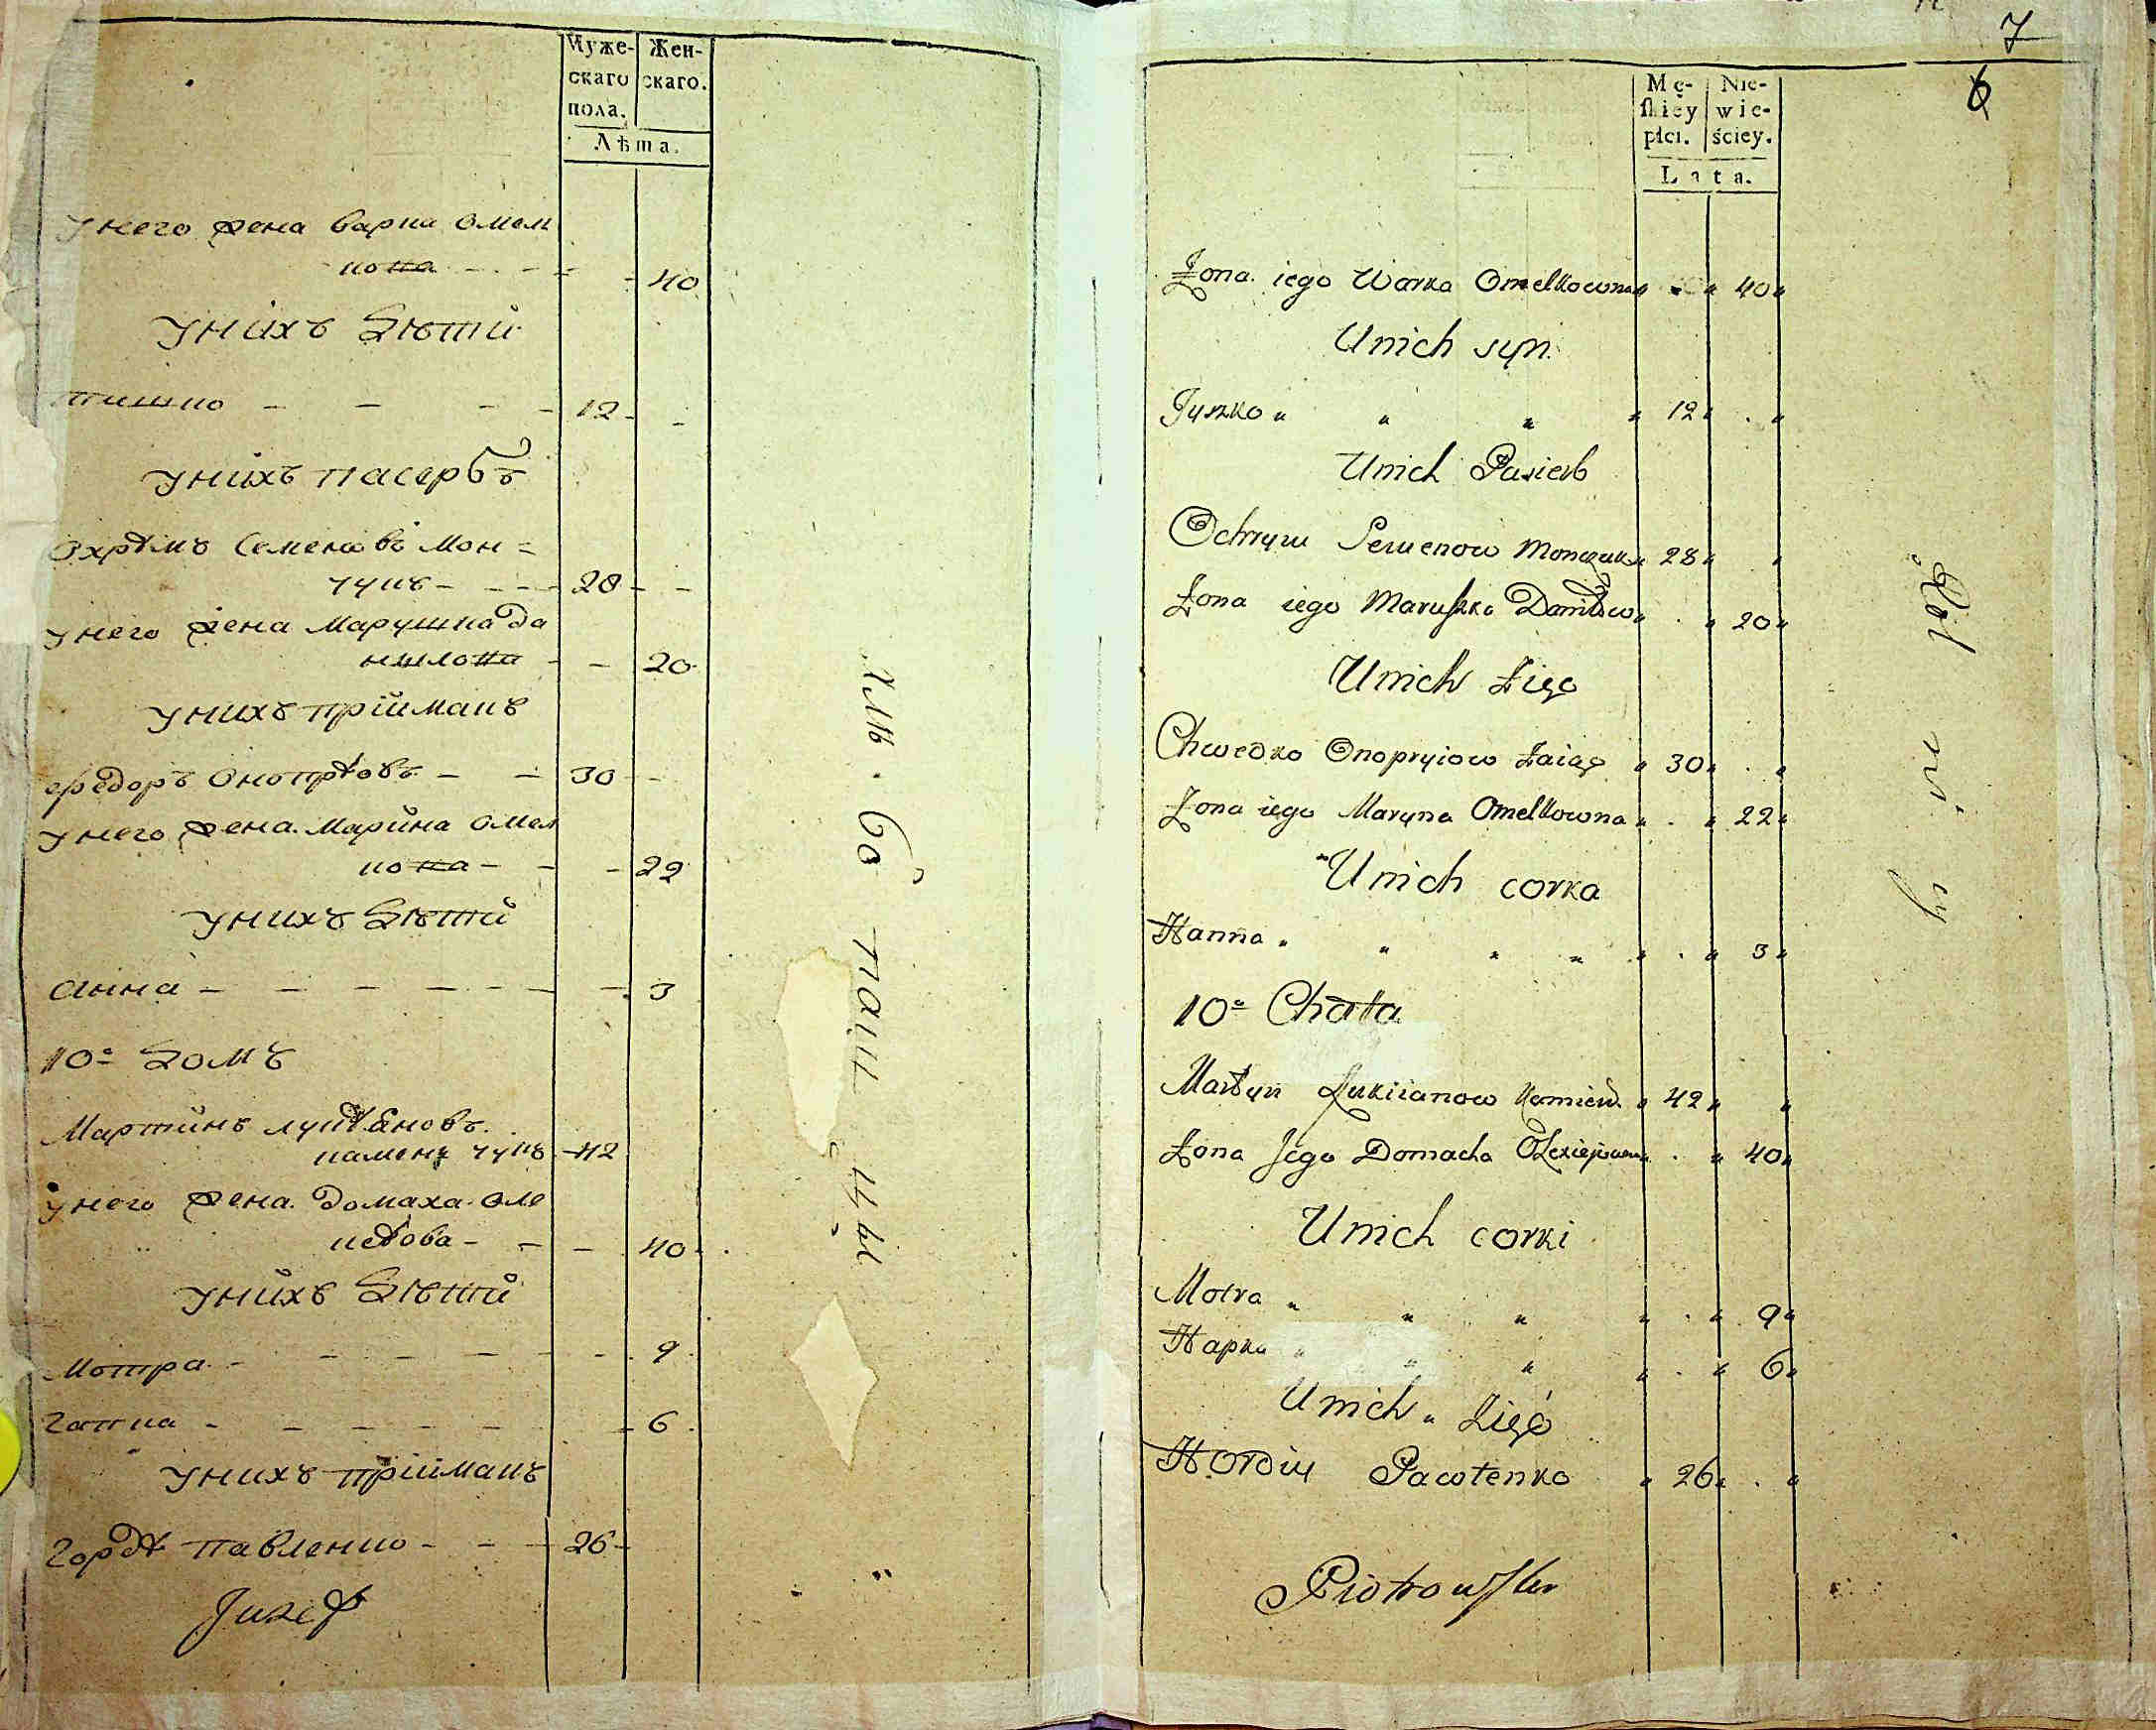 Муже-
скаго
пола.
Жен-
скаго.
Лѣта.
У него жена Варка Омел
кова 40
У нихъ дѣти
Тишко 12
У нихъ пасербъ
Охрѣмъ Семеновъ Мон=
чукъ 28
У него жена Марушка Да
нилова 20
У нихъ прійманъ
Федоръ Онопрѣовъ 30
У него жена Марина Омел
кова 22
У нихъ дѣти
Анна 3
10º домъ
Мартинъ Лукѣяновъ
каменчукъ 42
У него жена Домаха Оле
ксѣова 40
У нихъ дѣти
Мотра 9
Гапка 6
У нихъ прійманъ
Гордѣ Павленко 26
Juzef
Хлѣбо пашцы
7
6
Mę-
skiéy
płci.
Nie-
wie-
ściey.
Lata.
Żona iego Warka Omelkowna 40
Unich syn
Tyszko 12
Unich Pasierb
Ochrym Semenow Monczuk 28
Żona iego Maruszka Daniłow 20
Unich Zięc
Chwedko Onopryiow 30
Żona iego Maryna Omelkowna 22
Unich corka
Hanna 3
10º Chata
Martyn Łukiianow 42
Żona Jego Domacha Olexiejowna 40
Unich corki
Motra 9
Hapka 6
Unich Zięć
Hordiy Pawlenko 26
Piotrowski
Rolnicy